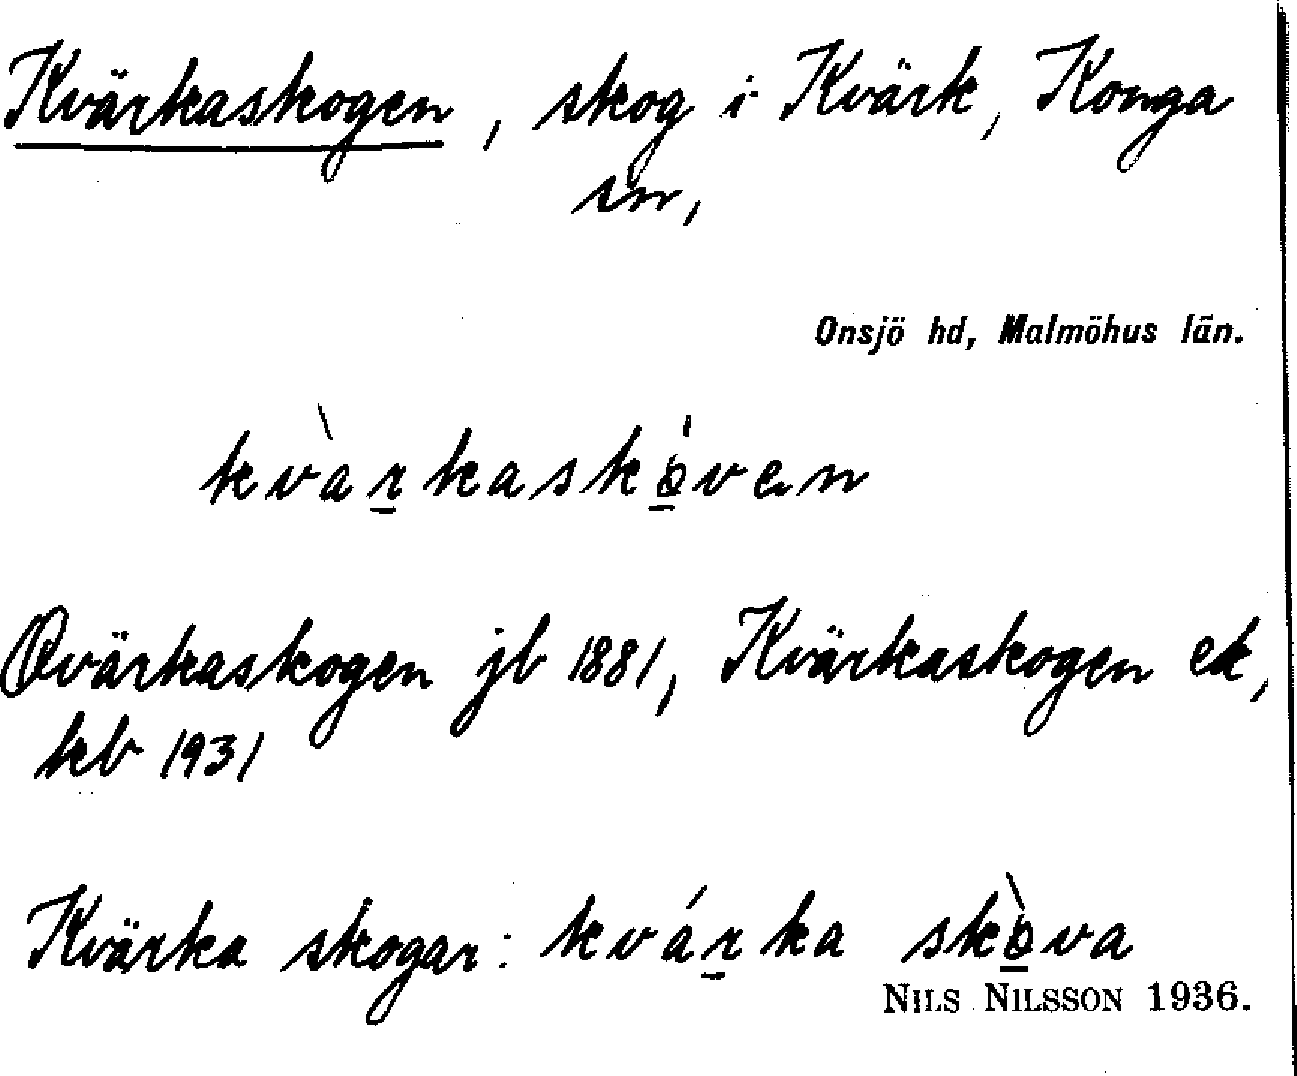 Kvärkaskogen, skog i Kvärk, Konga
sn,
Onsjö hd, Malmöhus län.
kvàr̲kaskó̲ven
Qvärkaskogen jb 1881, Kvärkaskogen ek,
kb 1931
Kvärka skogar: kvár̲ka skò̲va
NILS NILSSON 1936.